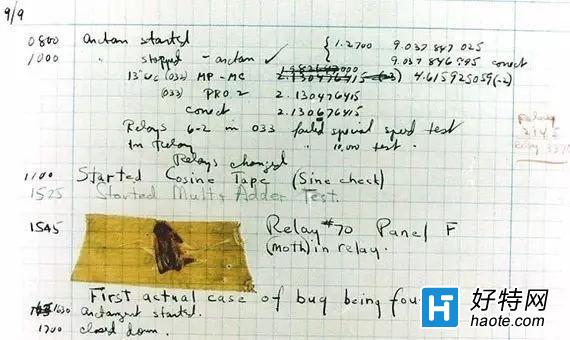 9/9
0800 antan started
1000 " stopped - antan ✓ { 1.2700 9.037 847 025
9.037 846 995 correct
13"uc (032) MP-MC 1.982647000 2.130476415 (-3) 4.615925059(-2)
(033) PRO 2 2.130476415
correct 2.130676415
Relays 6-2 in 033 failed special speed test
in relay " 10.000 test.
Relays changed
Relay
2145
Relay 3370
1100 Started Cosine Tape (Sine check)
1525 Started Mult + Adder Test.
1545 Relay #70 Panel F
(moth) in relay.
First actual case of bug being fou
1630 antangent started.
1700 closed down.
好特网
haote.com